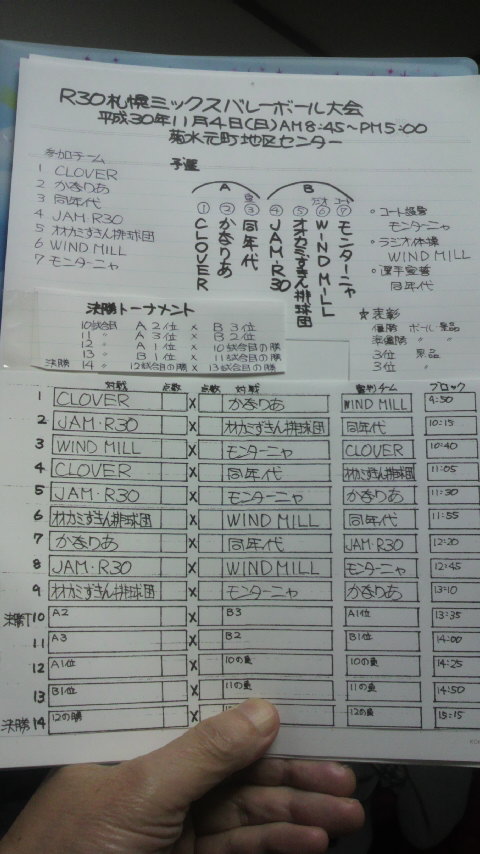 R30札幌ミックスバレーボール大会
平成30年11月4日(日)AM8:45~PM5:00
菊水元町地区センター
参加チーム
1 CLOVER
2 かなりあ
3 同年代
4 JAM・R30
5 オオカミずきん排球団
6 WIND MILL
7 モンターニャ
予選
A B
① CLOVER
② かなりあ
③ 同年代
④ JAM・R30
⑤ オオカミずきん排球団
⑥ WIND MILL
⑦ モンターニャ
○コート設営
モンターニャ
○ラジオ体操
WIND MILL
○選手宣誓
同年代
決勝トーナメント
10試合目 A 2位 × B 3位
11 〃 A 3位 × B 2位
12 〃 A 1位 × 10試合目の勝
13 〃 B 1位 × 11試合目の勝
決勝 14 〃 12試合目の勝 × 13試合目の勝
☆表彰
優勝 ボール・景品
準優勝 〃 〃
3位 景品
3位 〃
対戦 点数 点数 対戦 審判チーム ブロック
1 CLOVER × かなりあ WIND MILL 9:50
2 JAM・R30 × オオカミずきん排球団 同年代 10:15
3 WIND MILL × モンターニャ CLOVER 10:40
4 CLOVER × 同年代 オオカミずきん排球団 11:05
5 JAM・R30 × モンターニャ かなりあ 11:30
6 オオカミずきん排球団 × WIND MILL 同年代 11:55
7 かなりあ × 同年代 JAM・R30 12:20
8 JAM・R30 × WIND MILL モンターニャ 12:45
9 オオカミずきん排球団 × モンターニャ かなりあ 13:10
決勝T10 A2 × B3 A1位 13:35
11 A3 × B2 B1位 14:00
12 A1位 × 10の勝 10の負 14:25
13 B1位 × 11の勝 11の負 14:50
決勝14 12の勝 × 12の負 15:15